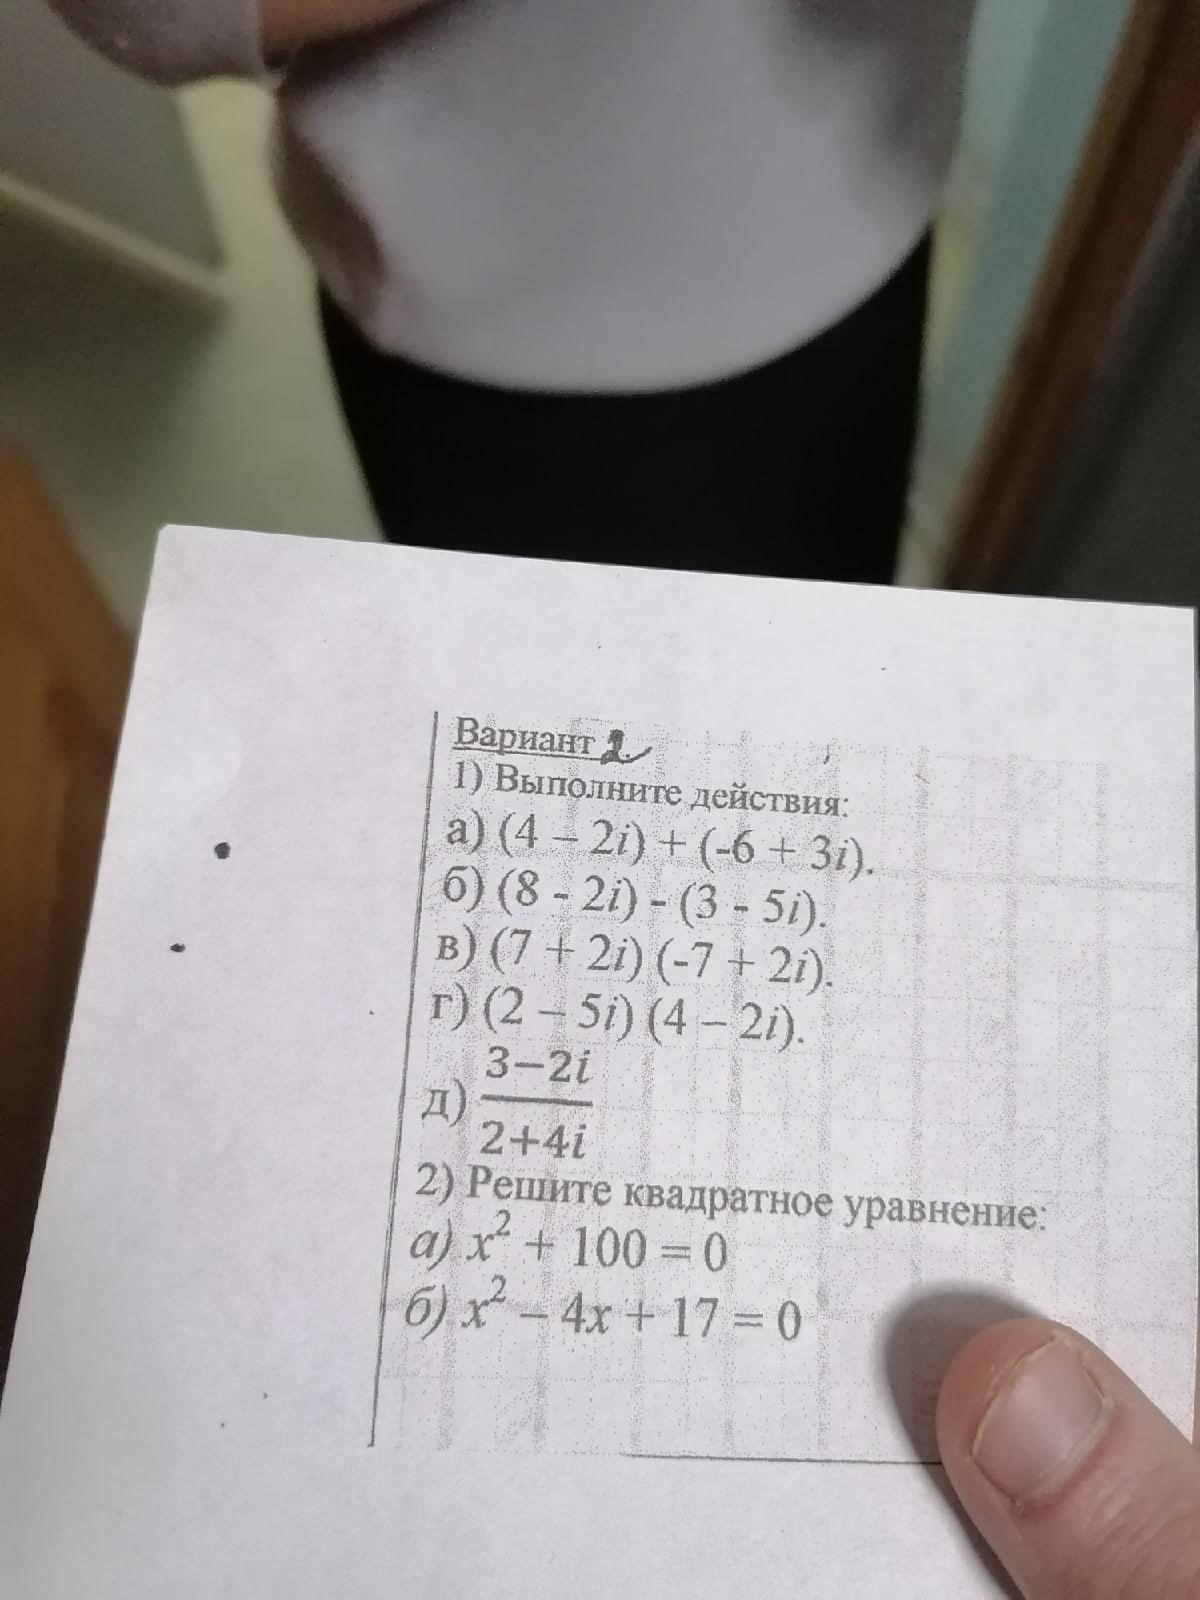 Вариант 2.
1) Выполните действия:
а) (4 – 2i) + (-6 + 3i).
б) (8 - 2i) - (3 - 5i).
в) (7 + 2i) (-7 + 2i).
г) (2 – 5i) (4 – 2i).
д) 3−2i
2+4i
2) Решите квадратное уравнение:
а) x² + 100 = 0
б) x² – 4x + 17 = 0